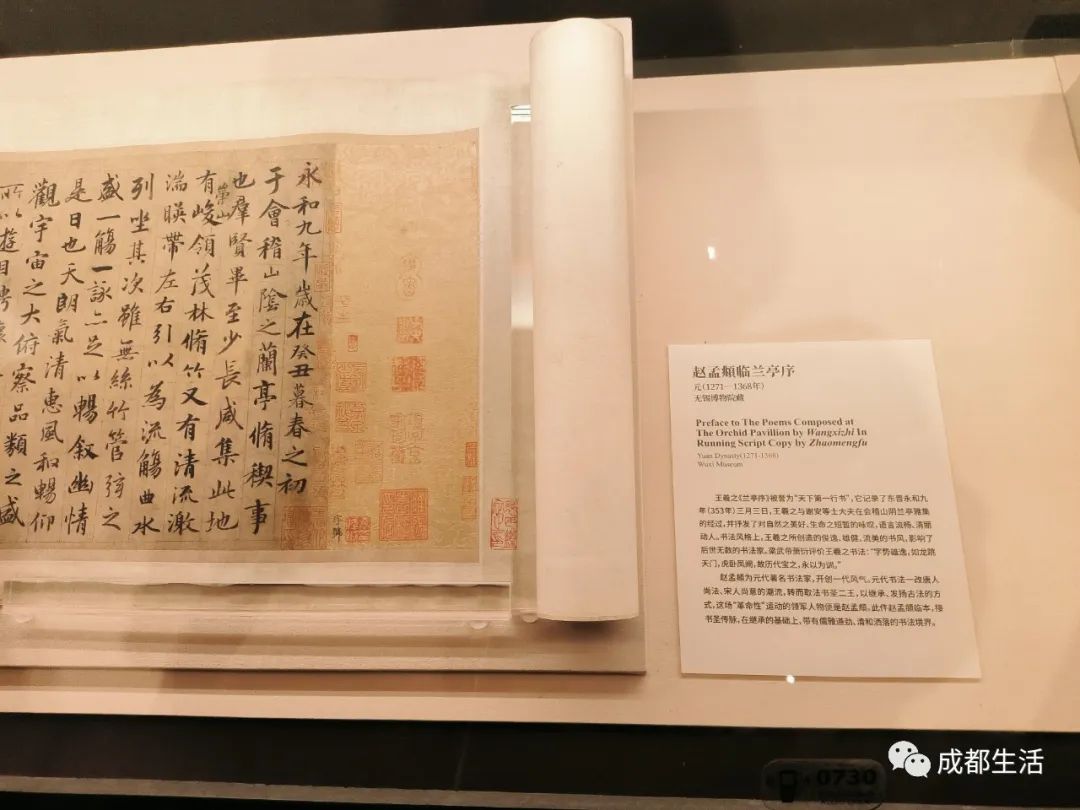 永和九年歲在癸丑暮春之初
于會稽山陰之蘭亭脩稧事
也羣賢畢至少長咸集此地
有崇山峻領茂林脩竹又有清流激
湍暎帶左右引以為流觴曲水
列坐其次雖無絲竹管弦之
盛一觴一詠亦足以暢叙幽情
是日也天朗氣清惠風和暢仰
觀宇宙之大俯察品類之盛
所以遊目騁懷
赵孟頫临兰亭序
元(1271—1368年)
无锡博物院藏
Preface to The Poems Composed at
The Orchid Pavillion by Wangxizhi In
Running Script Copy by Zhaomengfu
Yuan Dynasty(1271-1368)
Wuxi Museum
王羲之《兰亭序》被誉为“天下第一行书”，它记录了东晋永和九
年(353年)三月三日，王羲之与谢安等士大夫在会稽山阴兰亭雅集
的经过，并抒发了对自然之美好、生命之短暂的咏叹，语言流畅、清丽
动人。书法风格上，王羲之所创造的俊逸、雄健、流美的书风，影响了
后世无数的书法家。梁武帝萧衍评价王羲之书法：“字势雄逸，如龙跳
天门，虎卧凤阙，故历代宝之，永以为训。”
赵孟頫为元代著名书法家，开创一代风气。元代书法一改唐人
尚法、宋人尚意的潮流，转而取法书圣二王，以继承、发扬古法的方
式，这场“革命性”运动的领军人物便是赵孟頫。此件赵孟頫临本，接
书圣传脉，在继承的基础上，带有儒雅遒劲、清和洒落的书法境界。
0730
成都生活